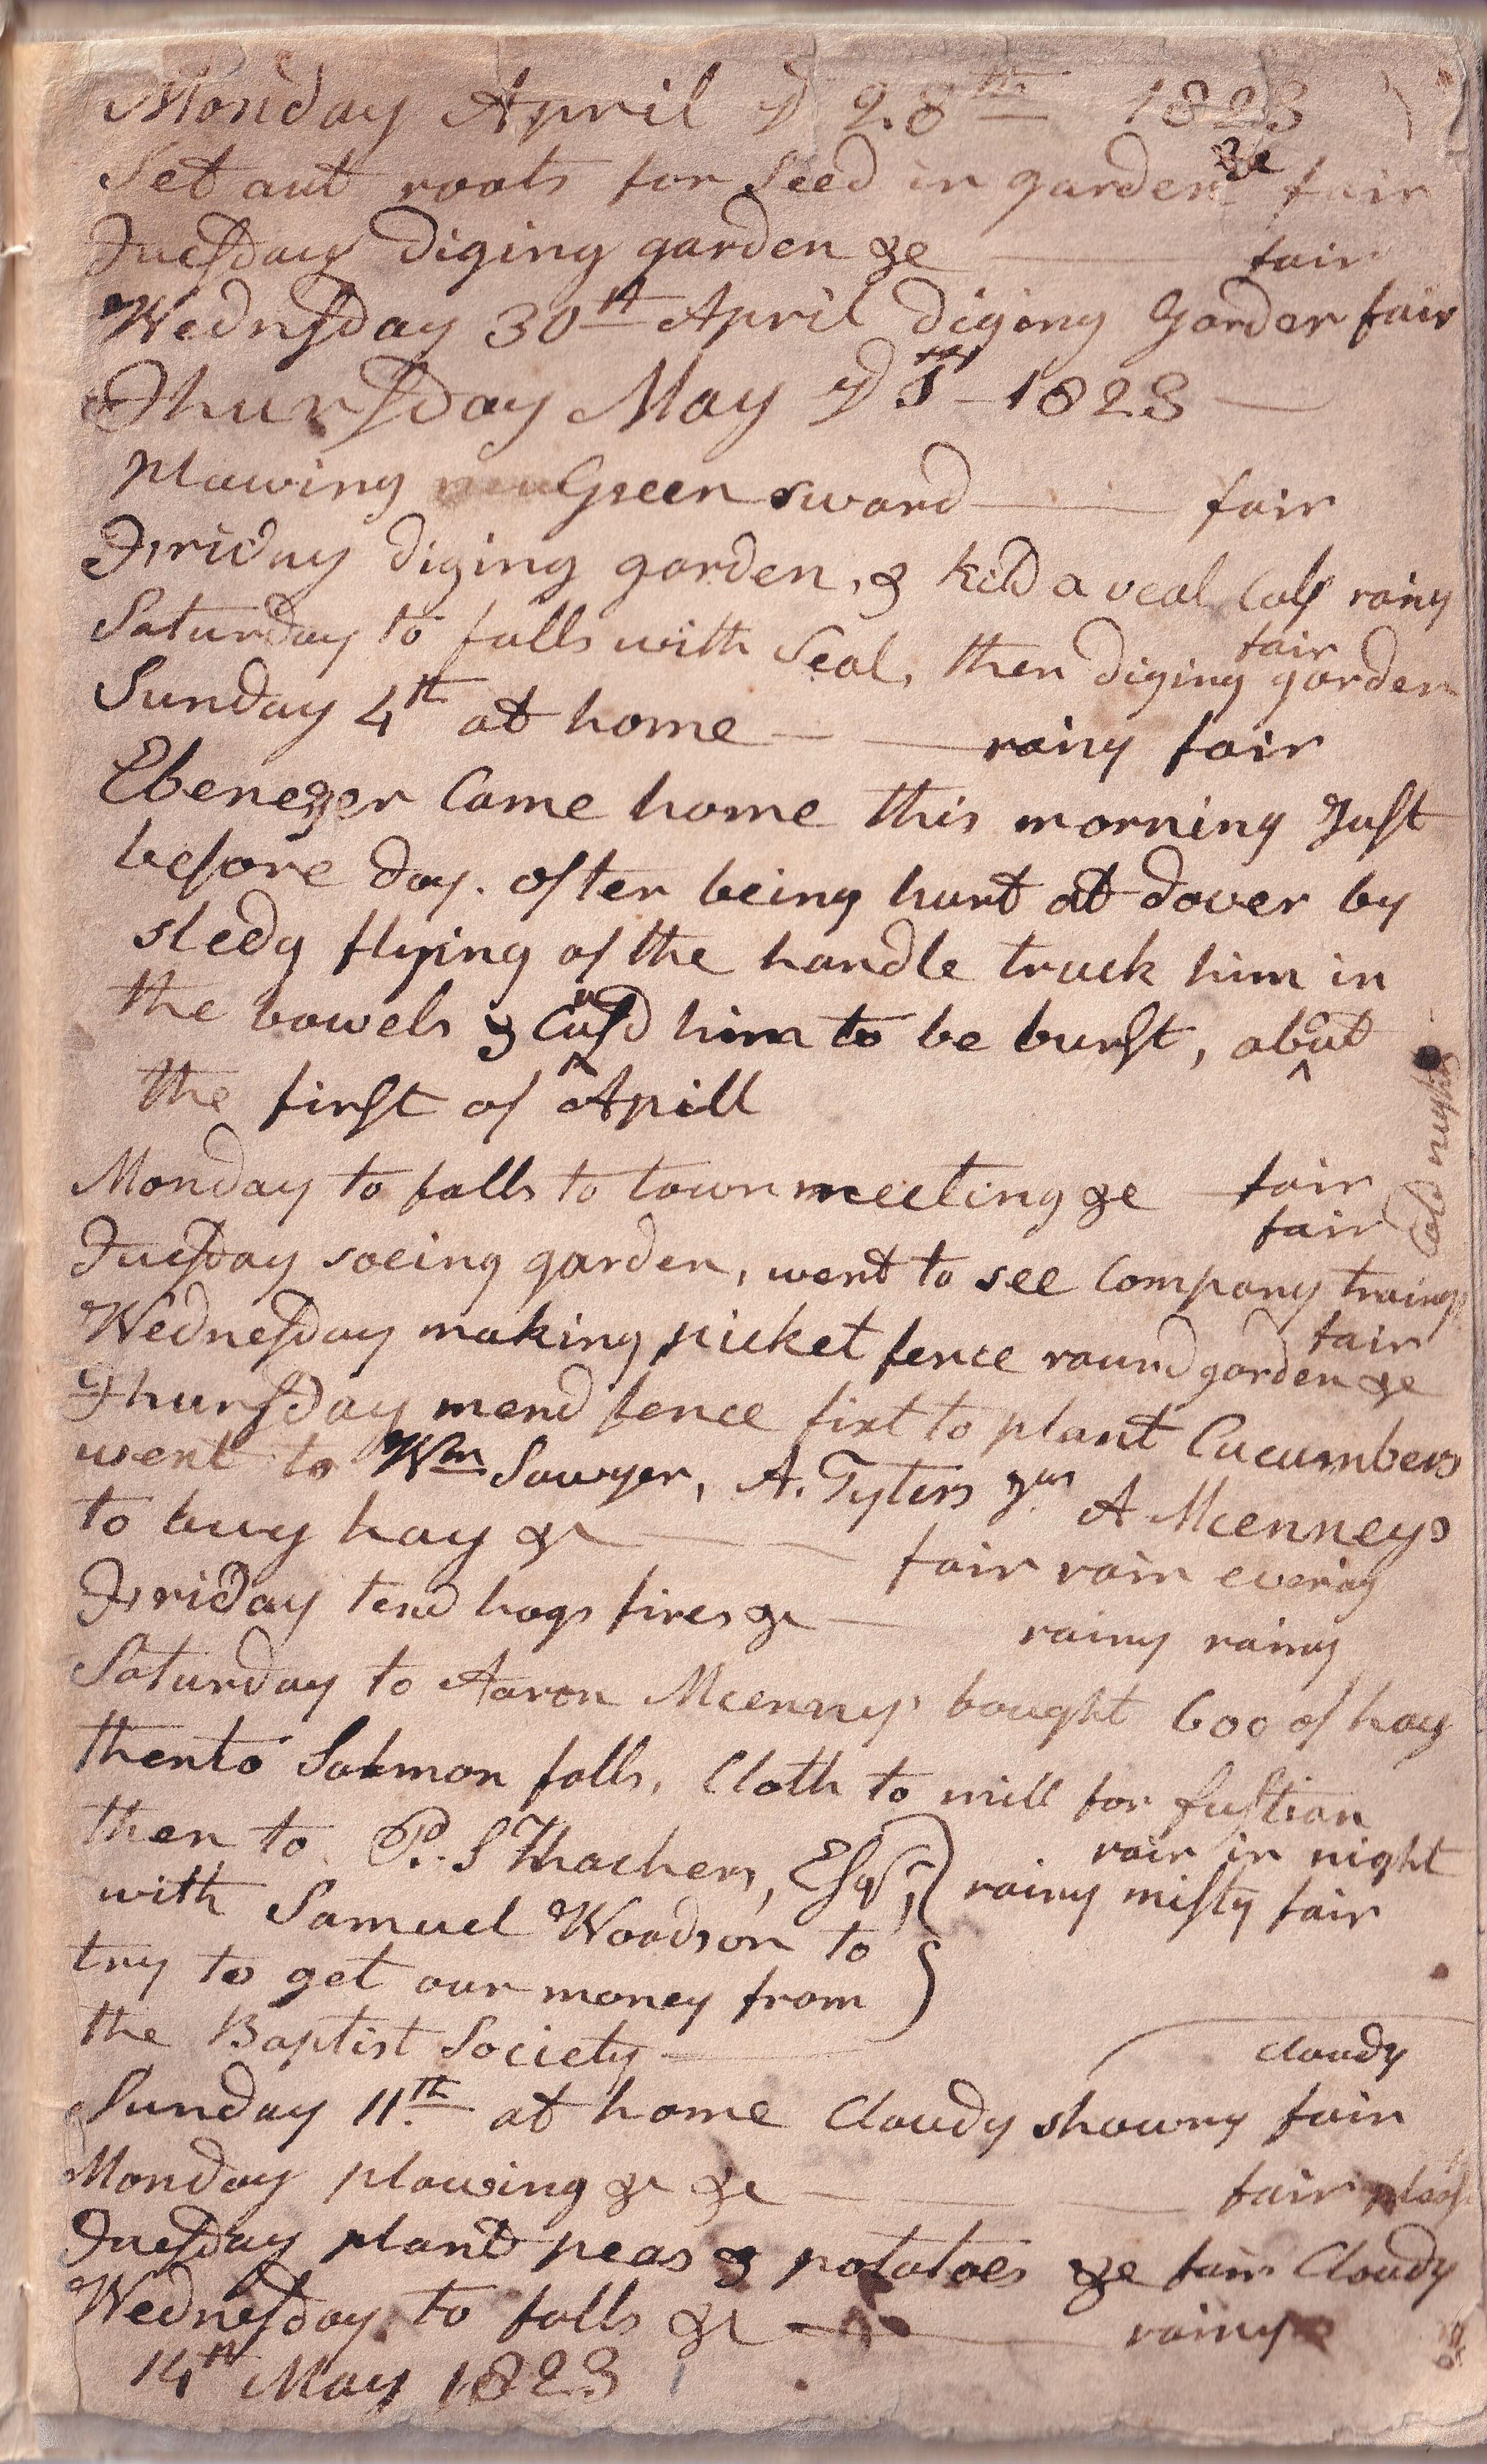 Monday April yd 28th 1823
Set aut roots for Seed in garden &c fair
Tuesday diging garden &c fair
Wednsday 30th April diging Garden fair
Thursday May yd 1st 1823
plawing Green sward fair
Friday diging garden, & kild a veal Calf rainy
Saturday to falls with Seal, then diging garden fair
Sunday 4th at home rainy fair
Ebenezer Came home this morning Just
before day. after being hurt at dover by
sledg flying of the handle truck him in
the bowels & Causd him to be burst, about
the first of Apill
Monday to falls to town meeting &c fair
Cold nights
fair
Tuesday soeing garden, went to see Company traing
Wednesday making picket fence round garden &c fair
Thursday mend fence fixt to plant Cucumbers
went to Wm Sawyer, A. Tylers Jur A Mcenneys
to buy hay &c fair rain evening
Friday tend hogs fires &c rainy rainy
Saturday to Aaron Mcennys bought 600 of hay
then to Salmon falls, Cloth to mill for fustian
then to P. S Thachers, Esqr, rain in night
rainy misty fair
with Samuel Woodson to
try to get our money from
the Baptist Society
cloudy
Sunday 11th at home Cloudy showry fair
Monday plowing &c &c fair
Tuesday plant peas & potatoes &c fair Cloudy
Wednesday to falls &c rainy
14th May 1823